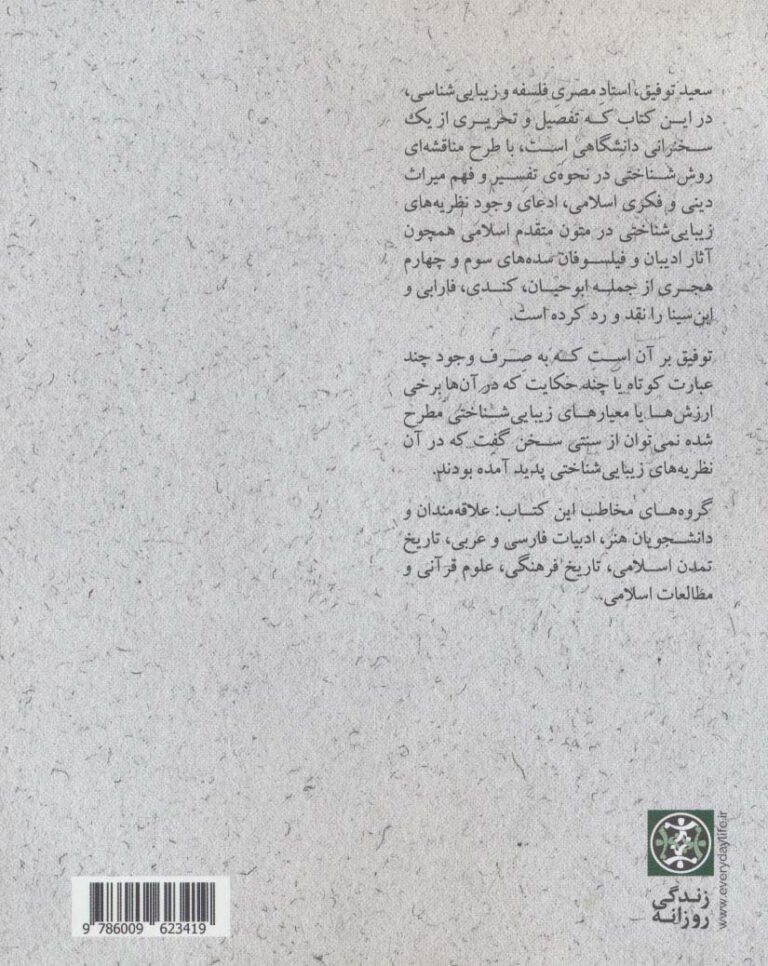 سعید توفیق، استادِ مصریِ فلسفه و زیبایی‌شناسی،
در این کتاب که تفصیل و تحریری از یک
سخنرانی دانشگاهی است، با طرح مناقشه‌ای
روش‌شناختی در نحوه‌ی تفسیر و فهم میراث
دینی و فکری اسلامی، ادعای وجود نظریه‌های
زیبایی‌شناختی در متون متقدم اسلامی همچون
آثار ادیبان و فیلسوفان سده‌های سوم و چهارم
هجری از جمله ابوحیان، کندی، فارابی و
ابن‌سینا را نقد و رد کرده است.
توفیق بر آن است که به صِرف وجود چند
عبارت کوتاه یا چند حکایت که در آن‌ها برخی
ارزش‌ها یا معیارهای زیبایی‌شناختی مطرح
شده نمی‌توان از سنتی سخن گفت که در آن
نظریه‌های زیبایی‌شناختی پدید آمده بودند.
گروه‌های مخاطب این کتاب: علاقه‌مندان و
دانشجویان هنر، ادبیات فارسی و عربی، تاریخ
تمدن اسلامی، تاریخ فرهنگی، علوم قرآنی و
مطالعات اسلامی.
www.everydaylife.ir
زندگی
روزانه
9 786009 623419